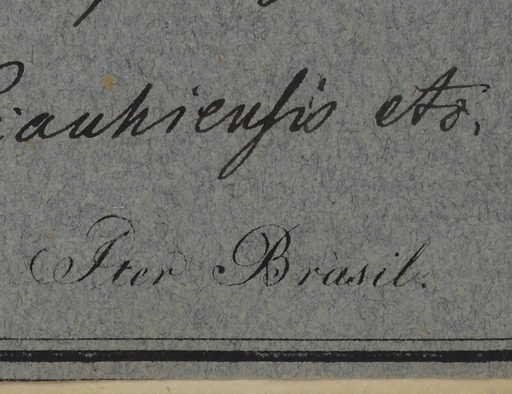 iauhiensis etc.
Iter Brasil.